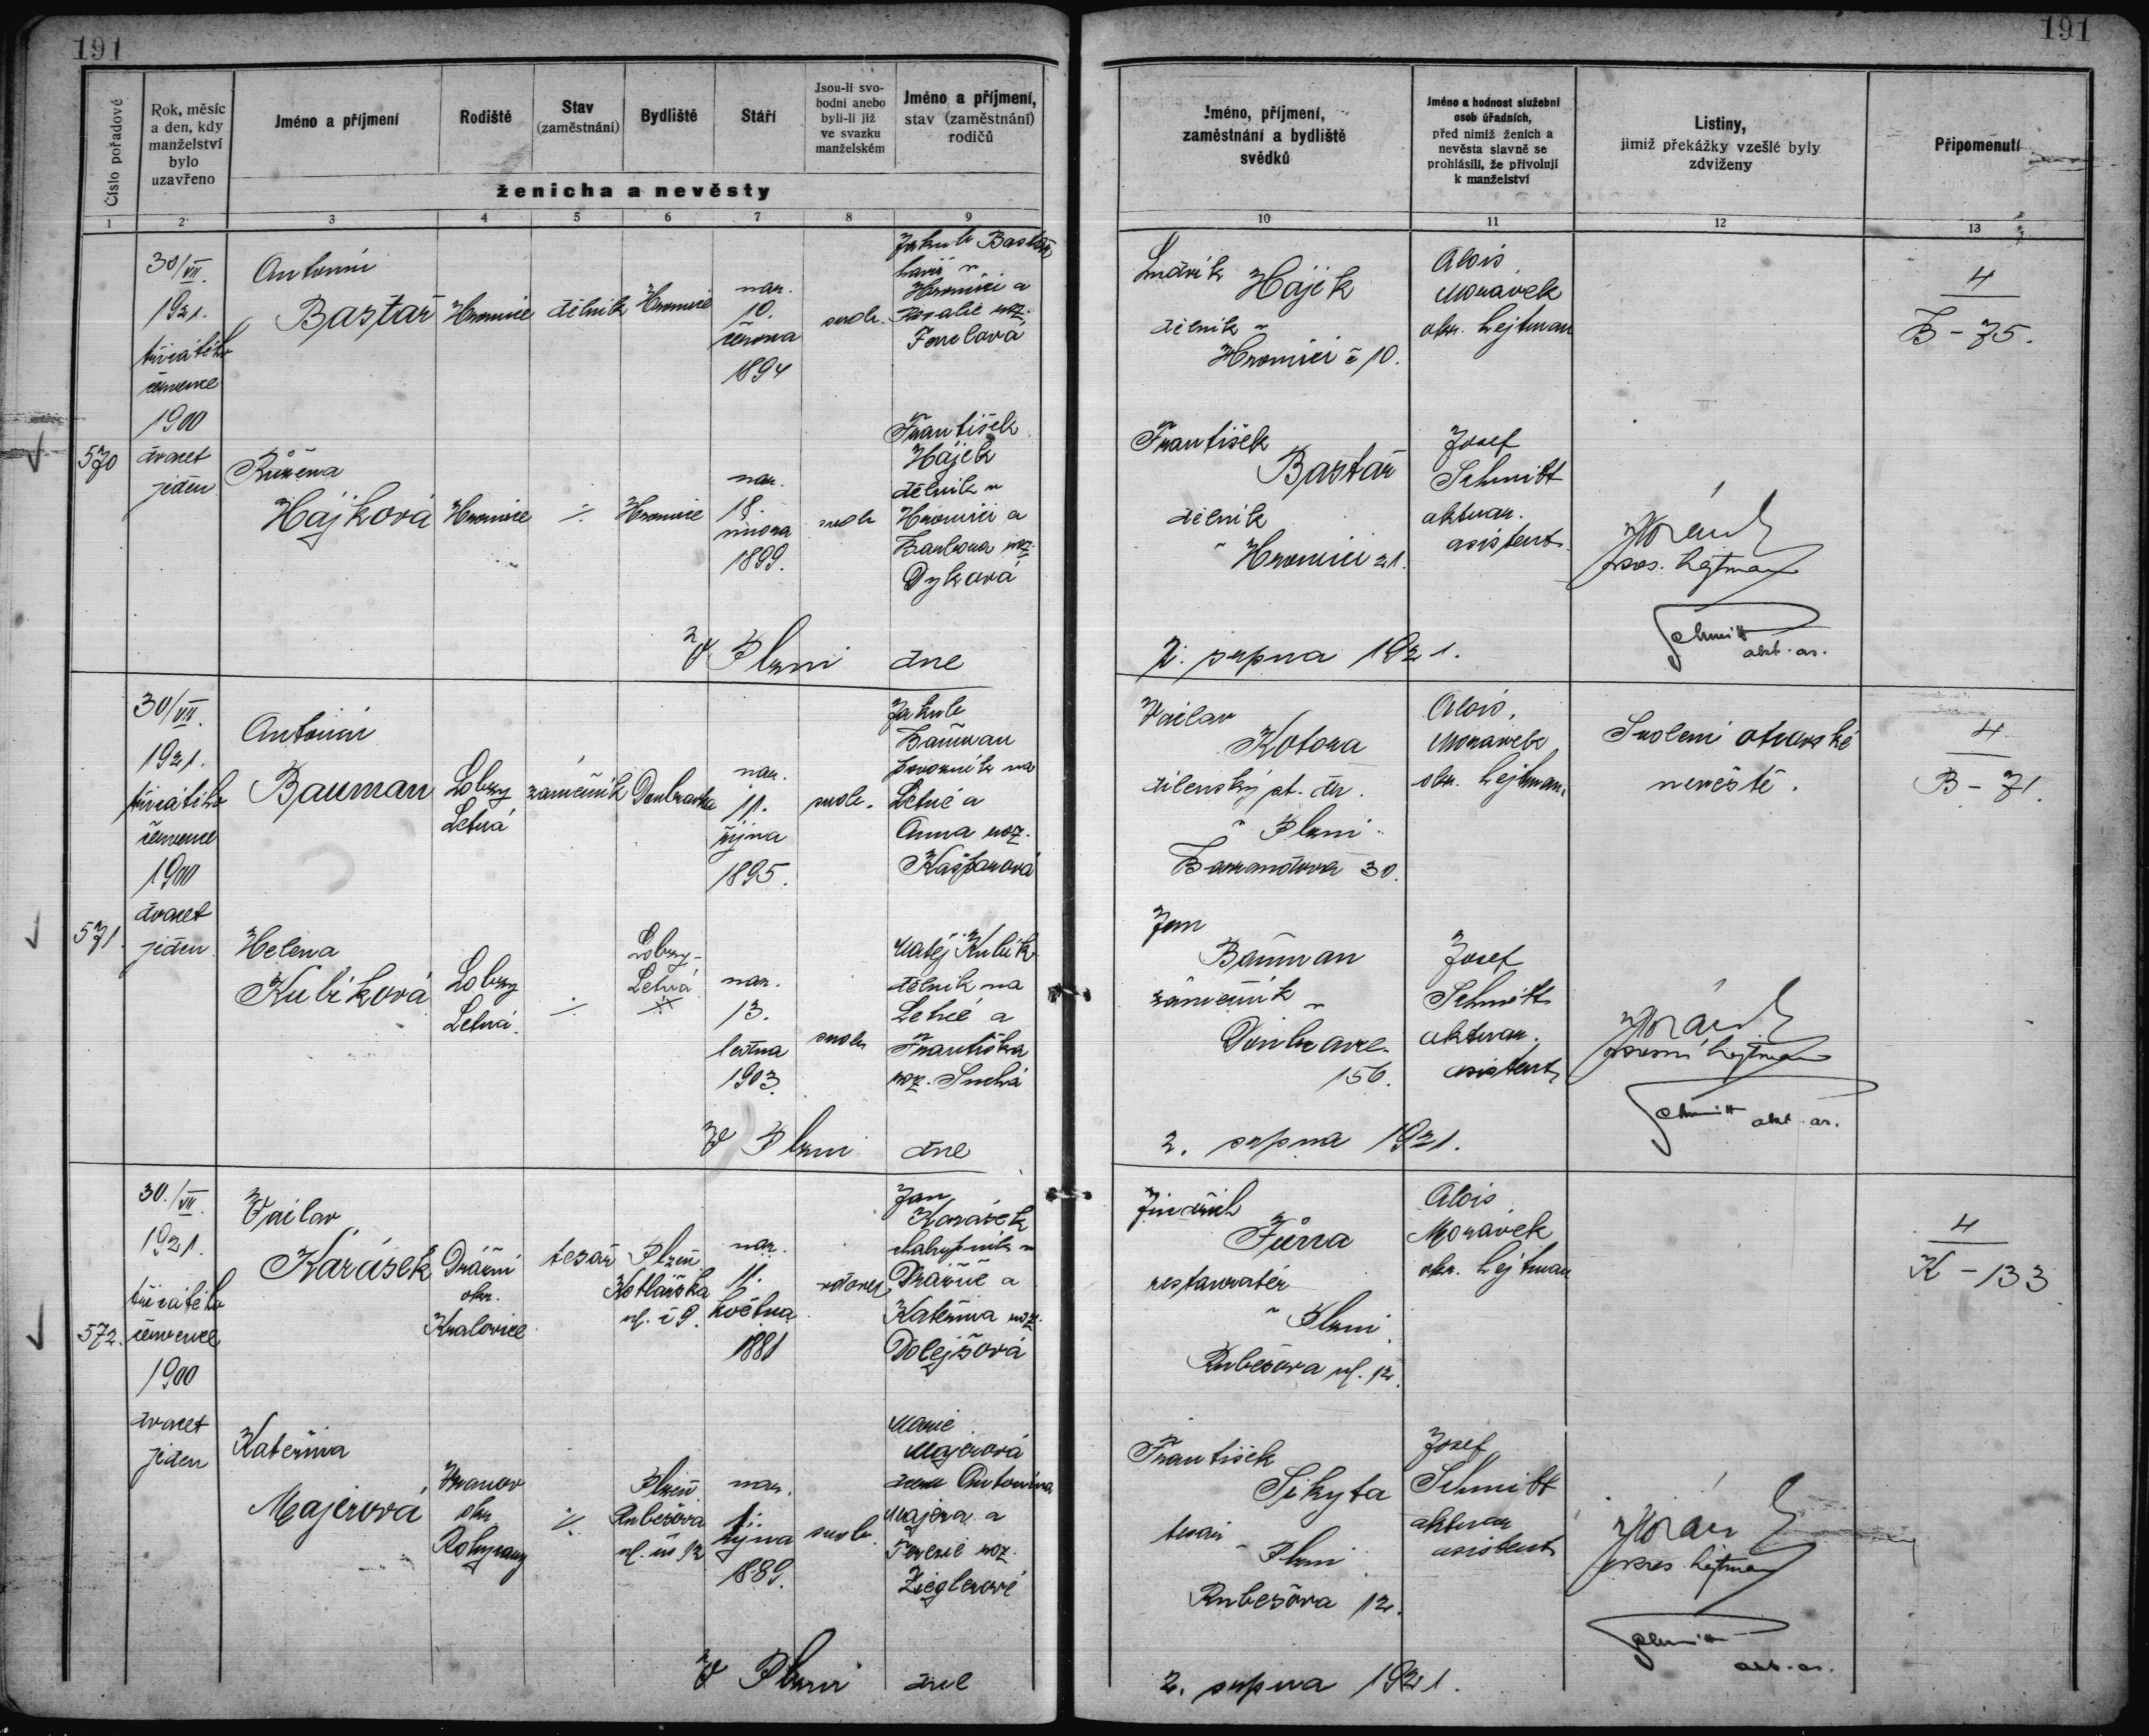 191
191
Číslo pořadové
Rok, měsíc
a den, kdy
manželství
bylo
uzavřeno
Jméno a příjmení
Rodiště
Stav
(zaměstnání)
Bydliště
Stáří
Jsou-li svo-
bodni anebo
byli-li již
ve svazku
manželském
Jméno a příjmení,
stav (zaměstnání)
rodičů
ženicha a nevěsty
1 2 3 4 5 6 7 8 9
Jméno, příjmení,
zaměstnání a bydliště
svědků
Jméno a hodnost služební
osob úřadních,
před nimiž ženich a
nevěsta slavně se
prohlásili, že přivolují
k manželství
Listiny,
jimiž překážky vzešlé byly
zdviženy
Připomenutí
10 11 12 13
570
30/VII.
1921.
třicátého
července
1900
dvacet
jeden
Antonín
Bastař
Hromnice
dělník
Hromnice
nar.
10.
června
1894
svob.
Jakub Bastař
v
Hromnici a
Rosalie roz.
Růžena
Hájková
Hromnice
Hromnice
nar.
18.
února
1899.
svob
František
Hájek
dělník v
Hromnici a
Barbora roz.
Dyková
Ludvík
Hájek
dělník v
Hromnici č 10.
František
Bastař
dělník
v Hromnici 21.
Alois
Morávek
okr. hejtman
Josef
Schmitt
aktuar.
asistent
hejtman
Schmitt
akt. as.
4
B - 75.
V Plzni dne
2. srpna 1921.
571.
30/VII.
1921.
třicátého
července
1900
dvacet
jeden
Antonín
Bauman
Lobzy
Letná
zámečník
Doubravka
nar.
11.
října
1895.
svob.
Jakub
Bauman
na
Letné a
Anna roz.
Kašparová
Helena
Kubíková
Lobzy
Letná.
Lobzy-
Letná
nar.
13.
ledna
1903.
svob
Matěj Kubík
dělník na
Letné a
Františka
roz. Suchá
Václav
Kotora
dílenský st. dr.
v Plzni
Barrandova 30.
Jan
Bauman
zámečník v
Doubravce
156.
Alois
Moravek
okr. hejtman
Josef
Schmitt
aktuar.
asistent
Svolení otcovské
nevěstě.
hejtman
Schmitt akt. as.
4
B - 71.
V Plzni dne
2. srpna 1921.
572.
30./VII.
1921.
třicátého
července
1900
dvacet
jeden
Václav
Karásek
okr.
Kralovice
tesař
Plzeň
Kotlářská
ul. č 9.
nar.
11.
května
1881
vdovec
Jan
Karásek
chalupník v
a
Kateřina roz.
Dolejšová
Kateřina
Majerová
Vranov
okr.
Rokycany
Plzeň
Rubešova
ul. 12
nar.
1.
října
1889.
svob.
Marie
Majerová
Antonína
Majera a
Terezie roz.
Zieglerové
Jindřich
Fůrra
restauratér
v Plzni
Rubešova ul. 12.
František
Sikyta
tesař
v Plzni
Rubešova 12.
Alois
Morávek
okr. hejtman
Josef
Schmitt
aktuar
asistent
hejtman
Schmitt
akt. as.
4
K - 133
V Plzni dne
2. srpna 1921.